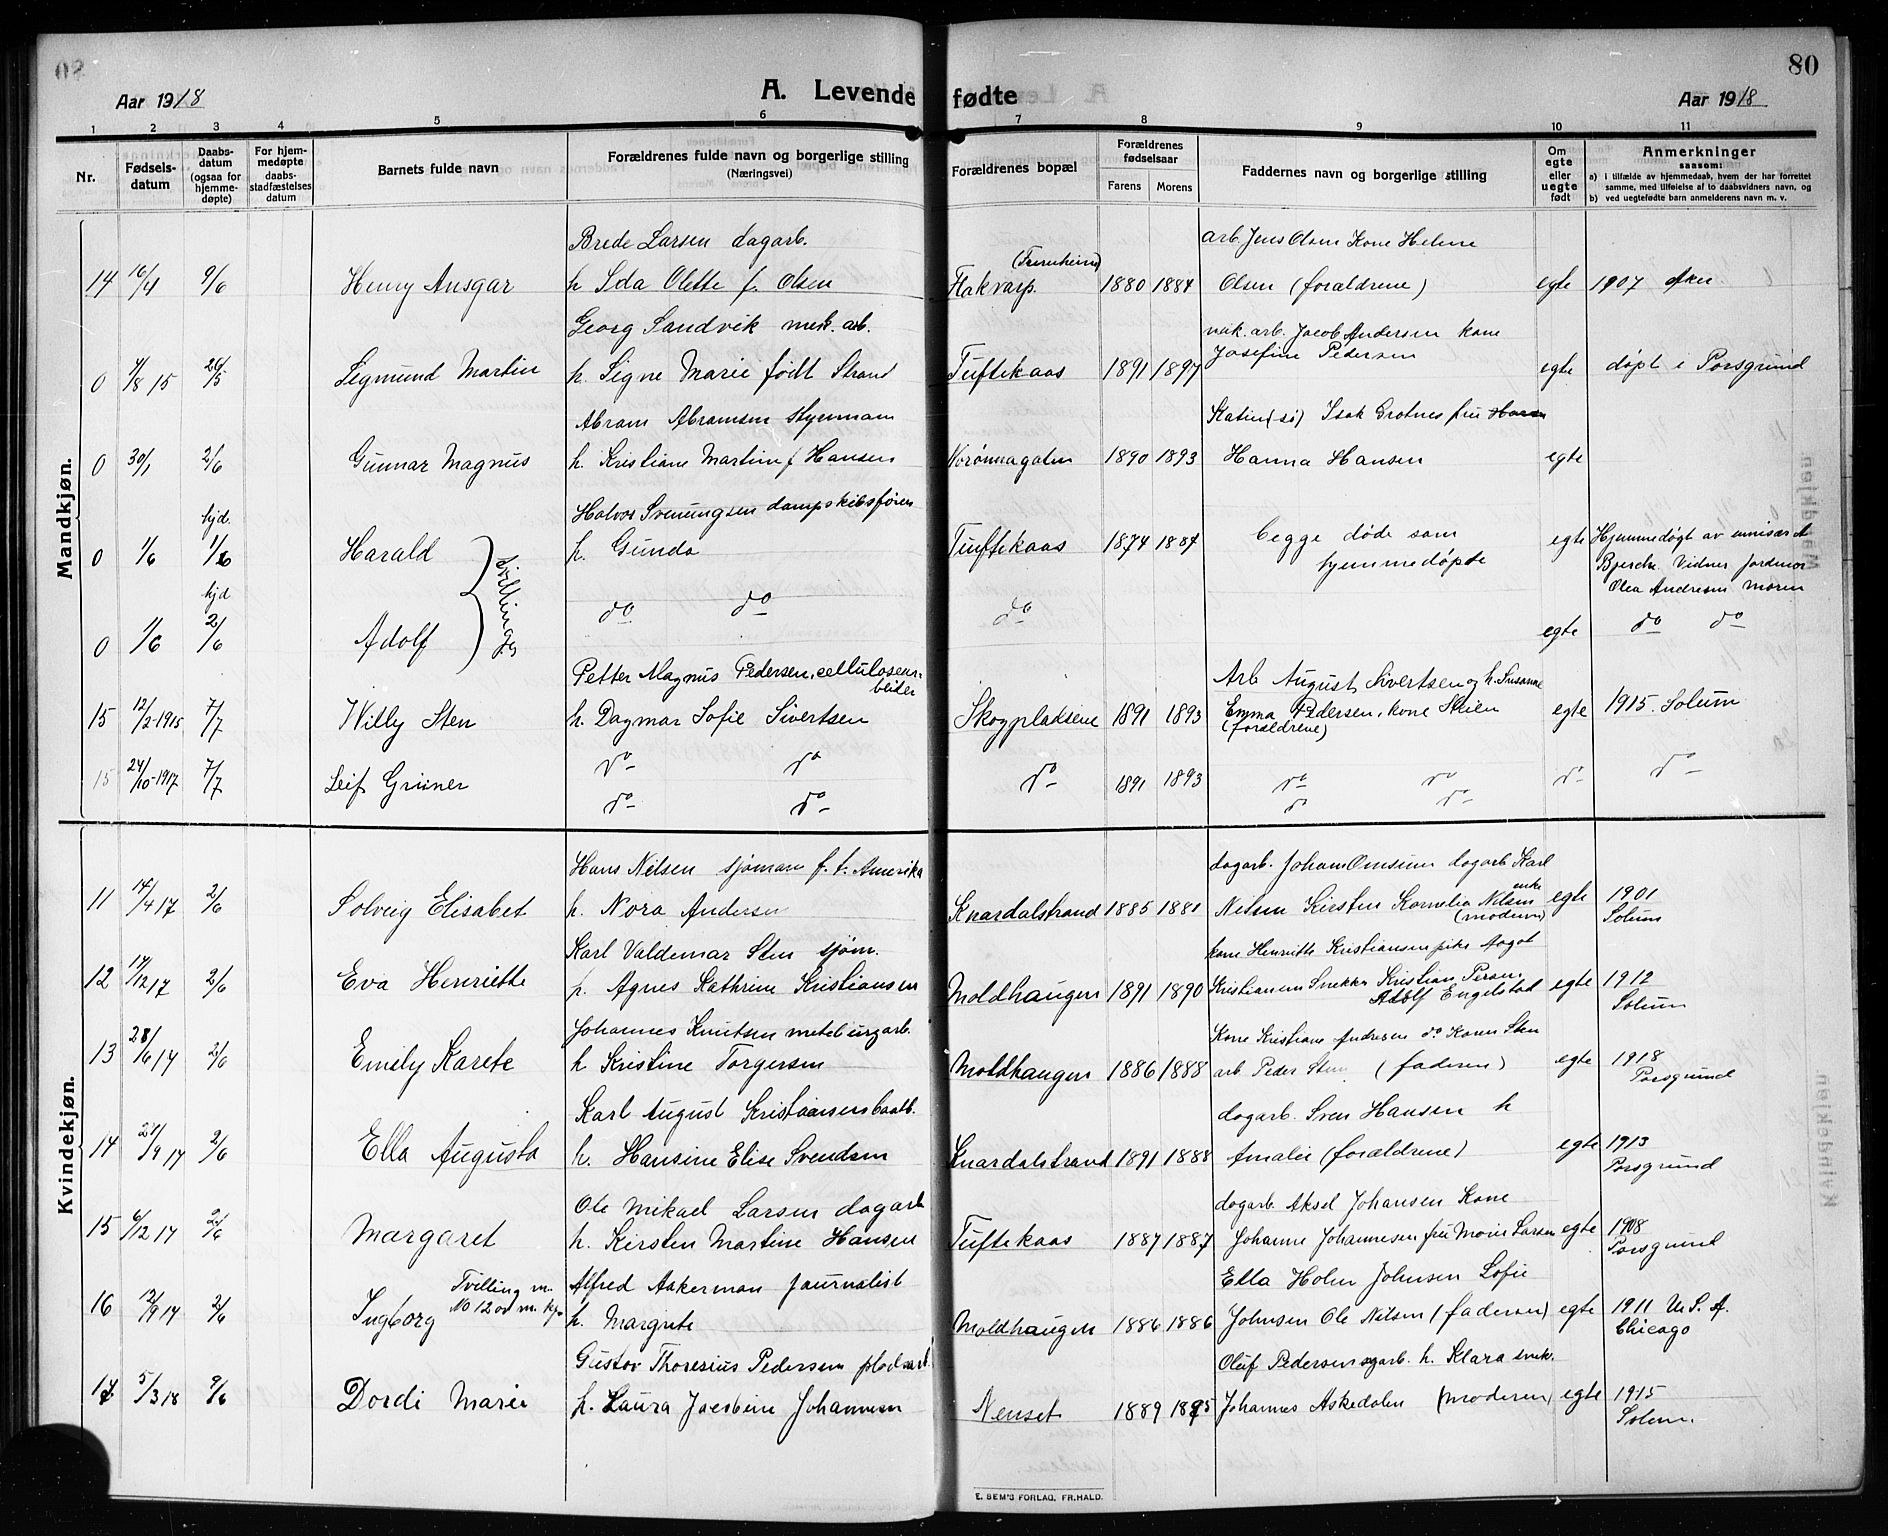 80
Aar 1918
A. Levende fødte
Aar 1918
1 2 3 4 5 6 7 8 9 10 11
Nr.
Fødsels-
datum
Daabs-
datum
(ogsaa for
hjemme-
døpte)
For hjem-
medøpte
daabs-
stadfæstelses
datum
Barnets fulde navn
Forældrenes fulde navn og borgerlige stilling
(Næringsvei)
Forældrenes bopæl
Forældrenes
fødselsaar
Farens Morens
Faddernes navn og borgerlige stilling
Om
egte
eller
uegte
født
Anmerkninger
saasom:
a) i tilfælde av hjemmedaab, hvem der har forrettet
samme, med tilføielse af to daabsvidners navn, og
b) ved uegtefødte barn anmelderens navn m. v.
Mandkjøn.
Brede Larsen dagarb. arb. Jens Olsen Kone Helene
14 16/4 9/6 Henry Ansgar h Ida Olette f. Olsen Flakvarp. 1880 1884 Olsen (forældrene) egte 1907 Aker
Georg Sandvik mek. arb. mek. arb. Jacob Andersen kone
Josefine Pedersen
0 4/8 15 26/5 Sigmund Martin h. Signe Marie født Strand Tuftekaas 1891 1897 egte døpt i Porsgrund
Abram Abramsen Styrmann Isak Grotnes fru
0 30/1 2/6 Gunnar Magnus h. Kristiane Martine f Hansen 1890 1893 Hanna Hansen egte
hjd. Halvor Svenungsen dampskibsfører
0 1/6 1/6 Harald h. Gunda Tuftekaas 1874 1884 begge døde som egte Hjemmedøpt av
hjemmedøpte Bjerche Vidner Jordmor
Tvillinger
hjd Olea Andresen Moren
0 1/6 2/6 Adolf do do do egte do do
Petter Magnus Pedersen, cellulosear-
beider Arb August Sivertsen og h. Susanne
15 12/2-1915 7/7 Willy Sten h. Dagmar Sofie Sivertsen Skogpladsene 1891 1893 Emma Pedersen, kone Skien egte 1915. Solum
(forældrene)
15 24/10-1917 7/7 Leif Grüner do do do 1891 1893 do do do do
do do do do
Kvindekjøn.
Hans Nilsen sjømann f. t. Amerika dagarb. Johan Omsum dagarb Karl
11 14/4 17 2/6 Solveig Elisabet h. Nora Andersen Knardalstrand 1885 1881 Nilsen Kirsten Kornelia Nilsen enke egte 1901
(moderen) Solum
Karl Valdemar Sten sjøm. kone Henriette Kristiansen pike Aagot
12 17/12 17 2/6 Eva Henriette h. Agnes Kathrine Kristiansen Moldhaugen 1891 1890 Kristiansen Snekker Kristian egte 1912
Adolf Engelstad Solum
Johannes Knutsen Kone Kristiane Andresen do Karen Sten
13 28/6 17 2/6 Emily Karete h Kristine Torgersen Moldhaugen 1886 1888 arb. Peder Sten (faderen) egte 1918
Porsgrund
Karl August Kristiansen baatb. dagarb. Sven Hansen h
14 21/9 17 2/6 Ella Augusta h. Hansine Elise Svendsen Knardalstrand 1891 1888 Amalie (forældrene) egte 1913
Porsgrund
Ole Mikael Larsen dagarb dagarb. Aksel Johansen Kone
15 6/12 17 2/6 Margaret h. Kirsten Martine Hansen Tuftekaas 1887 1887 Johanne Johannesen fru Larsen egte 1908
Porsgrund
Tvilling m. Alfred Askerman Journalist Ella Holm Johnsen Sofie
16 12/9 17 2/6 Ingborg No 12 h. Margrete Moldhaugen 1886 1886 Johnsen Ole Nilsen (faderen) egte 1911 U. S. A.
Chicago
Gustav Thoresius Pedersen Oluf Pedersen h. Klara
17 5/3 18 9/6 Dordi Marie h. Laura Jacobine Johannesen Nenset 1889 1895 Johannes Askedalen (moderen) egte 1915
Solum.
E. SEM'S FORLAG, FR.HALD.